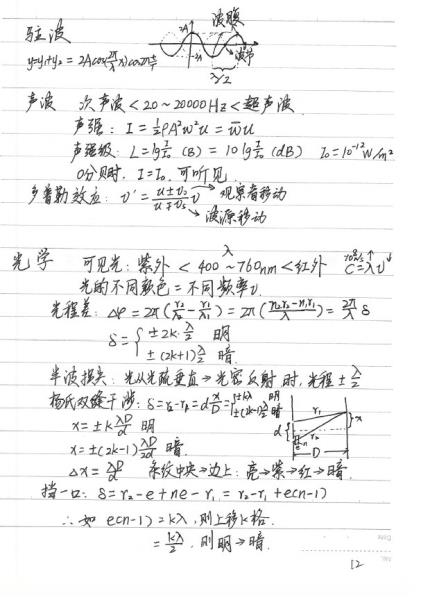 驻波
波腹
2A
-2A
波节
λ/2
y=y₁+y₂ = 2Acos(2π/λ x)cos2π t/T
声波 次声波 < 20~20000Hz < 超声波
声强: I = ½ρA²w²u = w̄u
声强级: L=lg I/I₀ (B) = 10 lg I/I₀ (dB) I₀=10⁻¹²W/m²
0分贝时, I=I₀, 可听见
多普勒效应: υ' = (u±v₀)/(u∓vₛ) υ → 观察者移动
→ 波源移动
光学 可见光: 紫外 < 400~760nm < 红外 C=λυ
λ
光的不同颜色 = 不同频率υ
光程差: Δφ = 2π(r₂/λ₂ - r₁/λ₁) = 2π(n₂r₂-n₁r₁ / λ) = 2π/λ δ
δ = { ±2k·λ/2 明
±(2k+1)λ/2 暗
半波损失: 光从光疏垂直→光密反射时, 光程±λ/2
杨氏双缝干涉: δ=r₂-r₁=d x/D={±kλ 明
±(2k-1)λ/2 暗
r₁
r₂
x
d
D
x = ±k λD/d 明
x = ±(2k-1) λD/2d 暗.
Δx = λD/d 条纹中央→边上: 亮→紫→红→暗.
挡一口: δ = r₂-e+ne-r₁ = r₂-r₁+e(n-1)
∴ 如 e(n-1) = kλ, 则上移k格.
= kλ/2, 则明→暗.
Date
No.
12